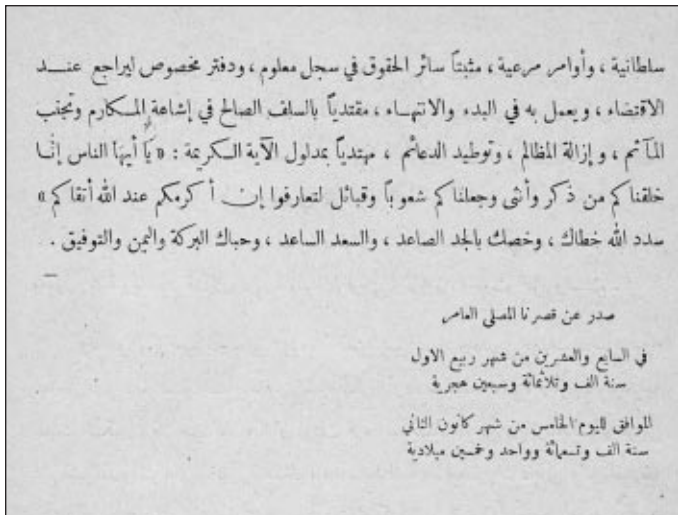 سلطانية ، وأوامر مرعية ، مثبتاً سائر الحقوق في سجل معلوم ، ودفتر مخصوص ليراجع عنــد
الاقتضاء ، ويعمل به في البدء والانتهـاء ، مقتدياً بالسلف الصالح في إشاعة المكارم وتجنب
المآثم ، و إزالة المظالم ، وتوطيد الدعائم ، مهتدياً بمدلول الآية الكريمة : « يَا أيها الناس إنَّـا
خلقناكم من ذكر وأنثى وجعلناكم شعوباً وقبائل لتعارفوا إن أكرمكم عند الله أتقاكم »
سدد الله خطاك ، وخصك بالجد الصاعد ، والسعد الساعد ، وحباك البركة واليمن والتوفيق .
صدر عن قصرنا المصلى العامر
في السابع والعشرين من شهر ربيع الاول
سنة الف وثلاثمائة وسبعين هجرية
الموافق لليوم الخامس من شهر كانون الثاني
سنة الف وتسعمائة وواحد وخمسين ميلادية